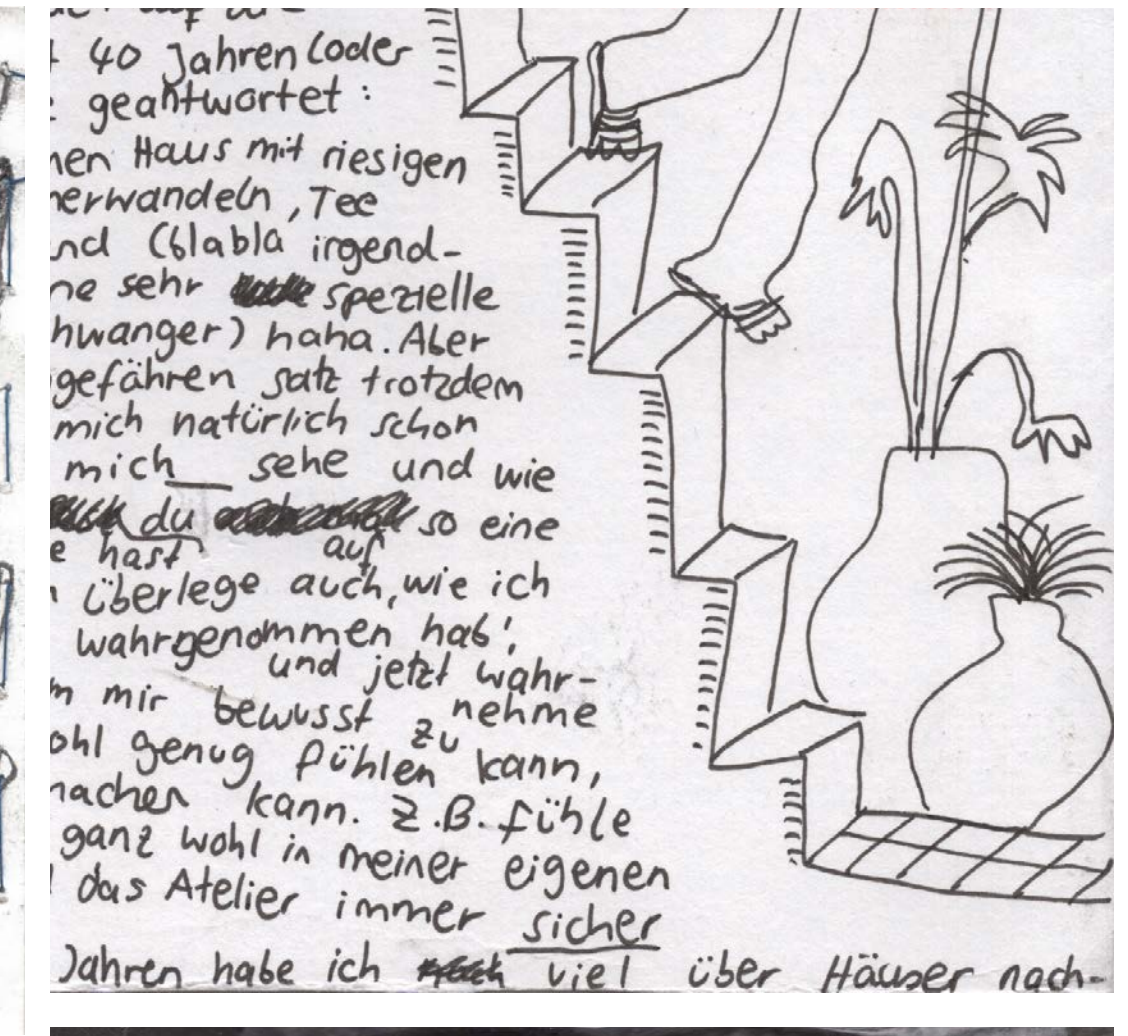 40 Jahren (oder
geantwortet:
nen Haus mit riesigen
herwandeln, Tee
nd (blabla irgend-
ne sehr spezielle
hwanger) haha. Aber
gefähren satz trotzdem
mich natürlich schon
mich sehe und wie
du so eine
e hast auf
überlege auch, wie ich
wahrgenommen hab',
und jetzt wahr-
m mir bewusst zu nehme
ohl genug fühlen kann,
machen kann. Z.B. fühle
ganz wohl in meiner eigenen
das Atelier immer sicher
Jahren habe ich viel über Häuser nach-